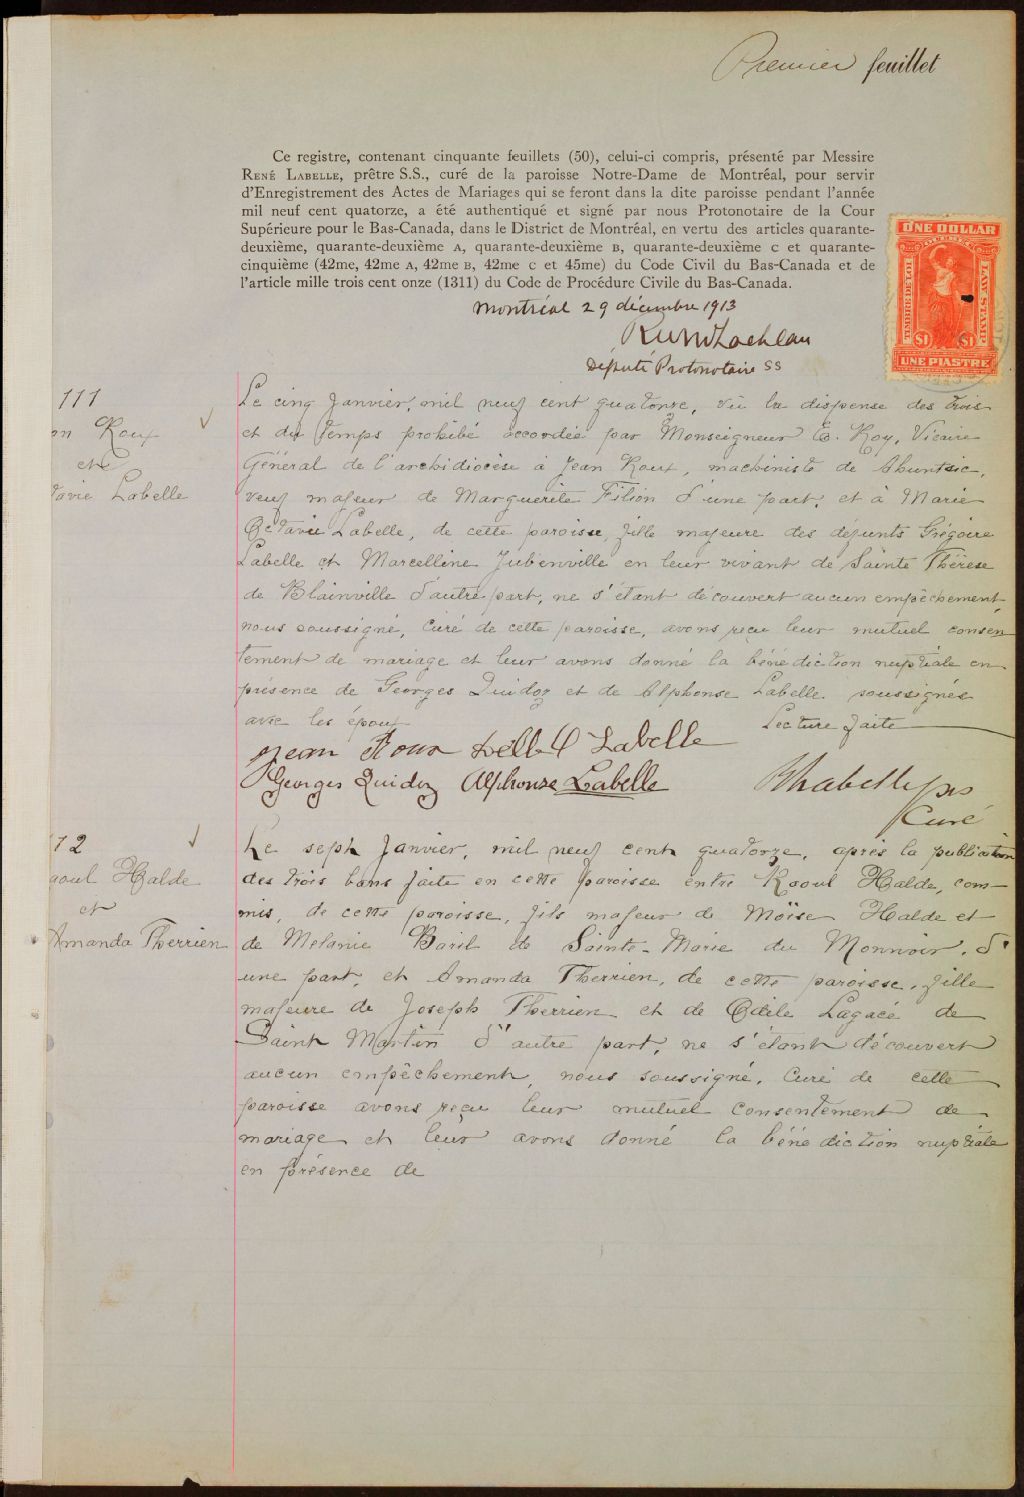 Premier feuillet
Ce registre, contenant cinquante feuillets (50), celui-ci compris, présenté par Messire
RENÉ LABELLE, prêtre S.S., curé de la paroisse Notre-Dame de Montréal, pour servir
d'Enregistrement des Actes de Mariages qui se feront dans la dite paroisse pendant l'année
mil neuf cent quatorze, a été authentiqué et signé par nous Protonotaire de la Cour
Supérieure pour le Bas-Canada, dans le District de Montréal, en vertu des articles quarante-
deuxième, quarante-deuxième A, quarante-deuxième B, quarante-deuxième C et quarante-
cinquième (42me, 42me A, 42me B, 42me C et 45me) du Code Civil du Bas-Canada et de
l'article mille trois cent onze (1311) du Code de Procédure Civile du Bas-Canada.
ONE DOLLAR
TIMBRE DE LOI
LAW STAMP
$1 $1
UNE PIASTRE
Montréal 29 décembre 1913
Député Protonotaire SS
111
n Roux
et
tavie Labelle
Le cinq Janvier, mil neuf cent quatorze, vu la dispense des trois
et du temps prohibé accordée par Monseigneur E. Roy, Vicaire
Général de l'archidiocèse à Jean Roux, machiniste de Ahuntsic,
veuf majeur de Marguerite Filion d'une part, et à Marie
Octavie Labelle, de cette paroisse, fille majeure des défunts Grégoire
Labelle et Marcelline Jubenville en leur vivant de Sainte Thérèse
de Blainville d'autre part, ne s'étant découvert aucun empêchement,
nous soussigné, Curé de cette paroisse, avons reçu leur mutuel consen
tement de mariage et leur avons donné la bénédiction nuptiale en
présence de Georges Quidoz et de Alphonse Labelle soussignés
avec les époux Lecture faite
Jean Roux Labelle
Georges Quidoz Alphonse Labelle
Labelle pss
Curé
12
aoul Halde
et
Amanda Therrien
Le sept Janvier, mil neuf cent quatorze, après la publication
des trois bans faite en cette paroisse entre Raoul Halde, com-
mis, de cette paroisse, fils majeur de Moïse Halde et
de Melanie Baril de Sainte-Marie du Monnoir, d'
une part, et Amanda Therrien, de cette paroisse, fille
majeure de Joseph Therrien et de Odile Lagacé de
Saint Martin d'autre part, ne s'étant découvert
aucun empêchement, nous soussigné, Curé de cette
paroisse avons reçu leur mutuel consentement de
mariage et leur avons donné la bénédiction nuptiale
en présence de